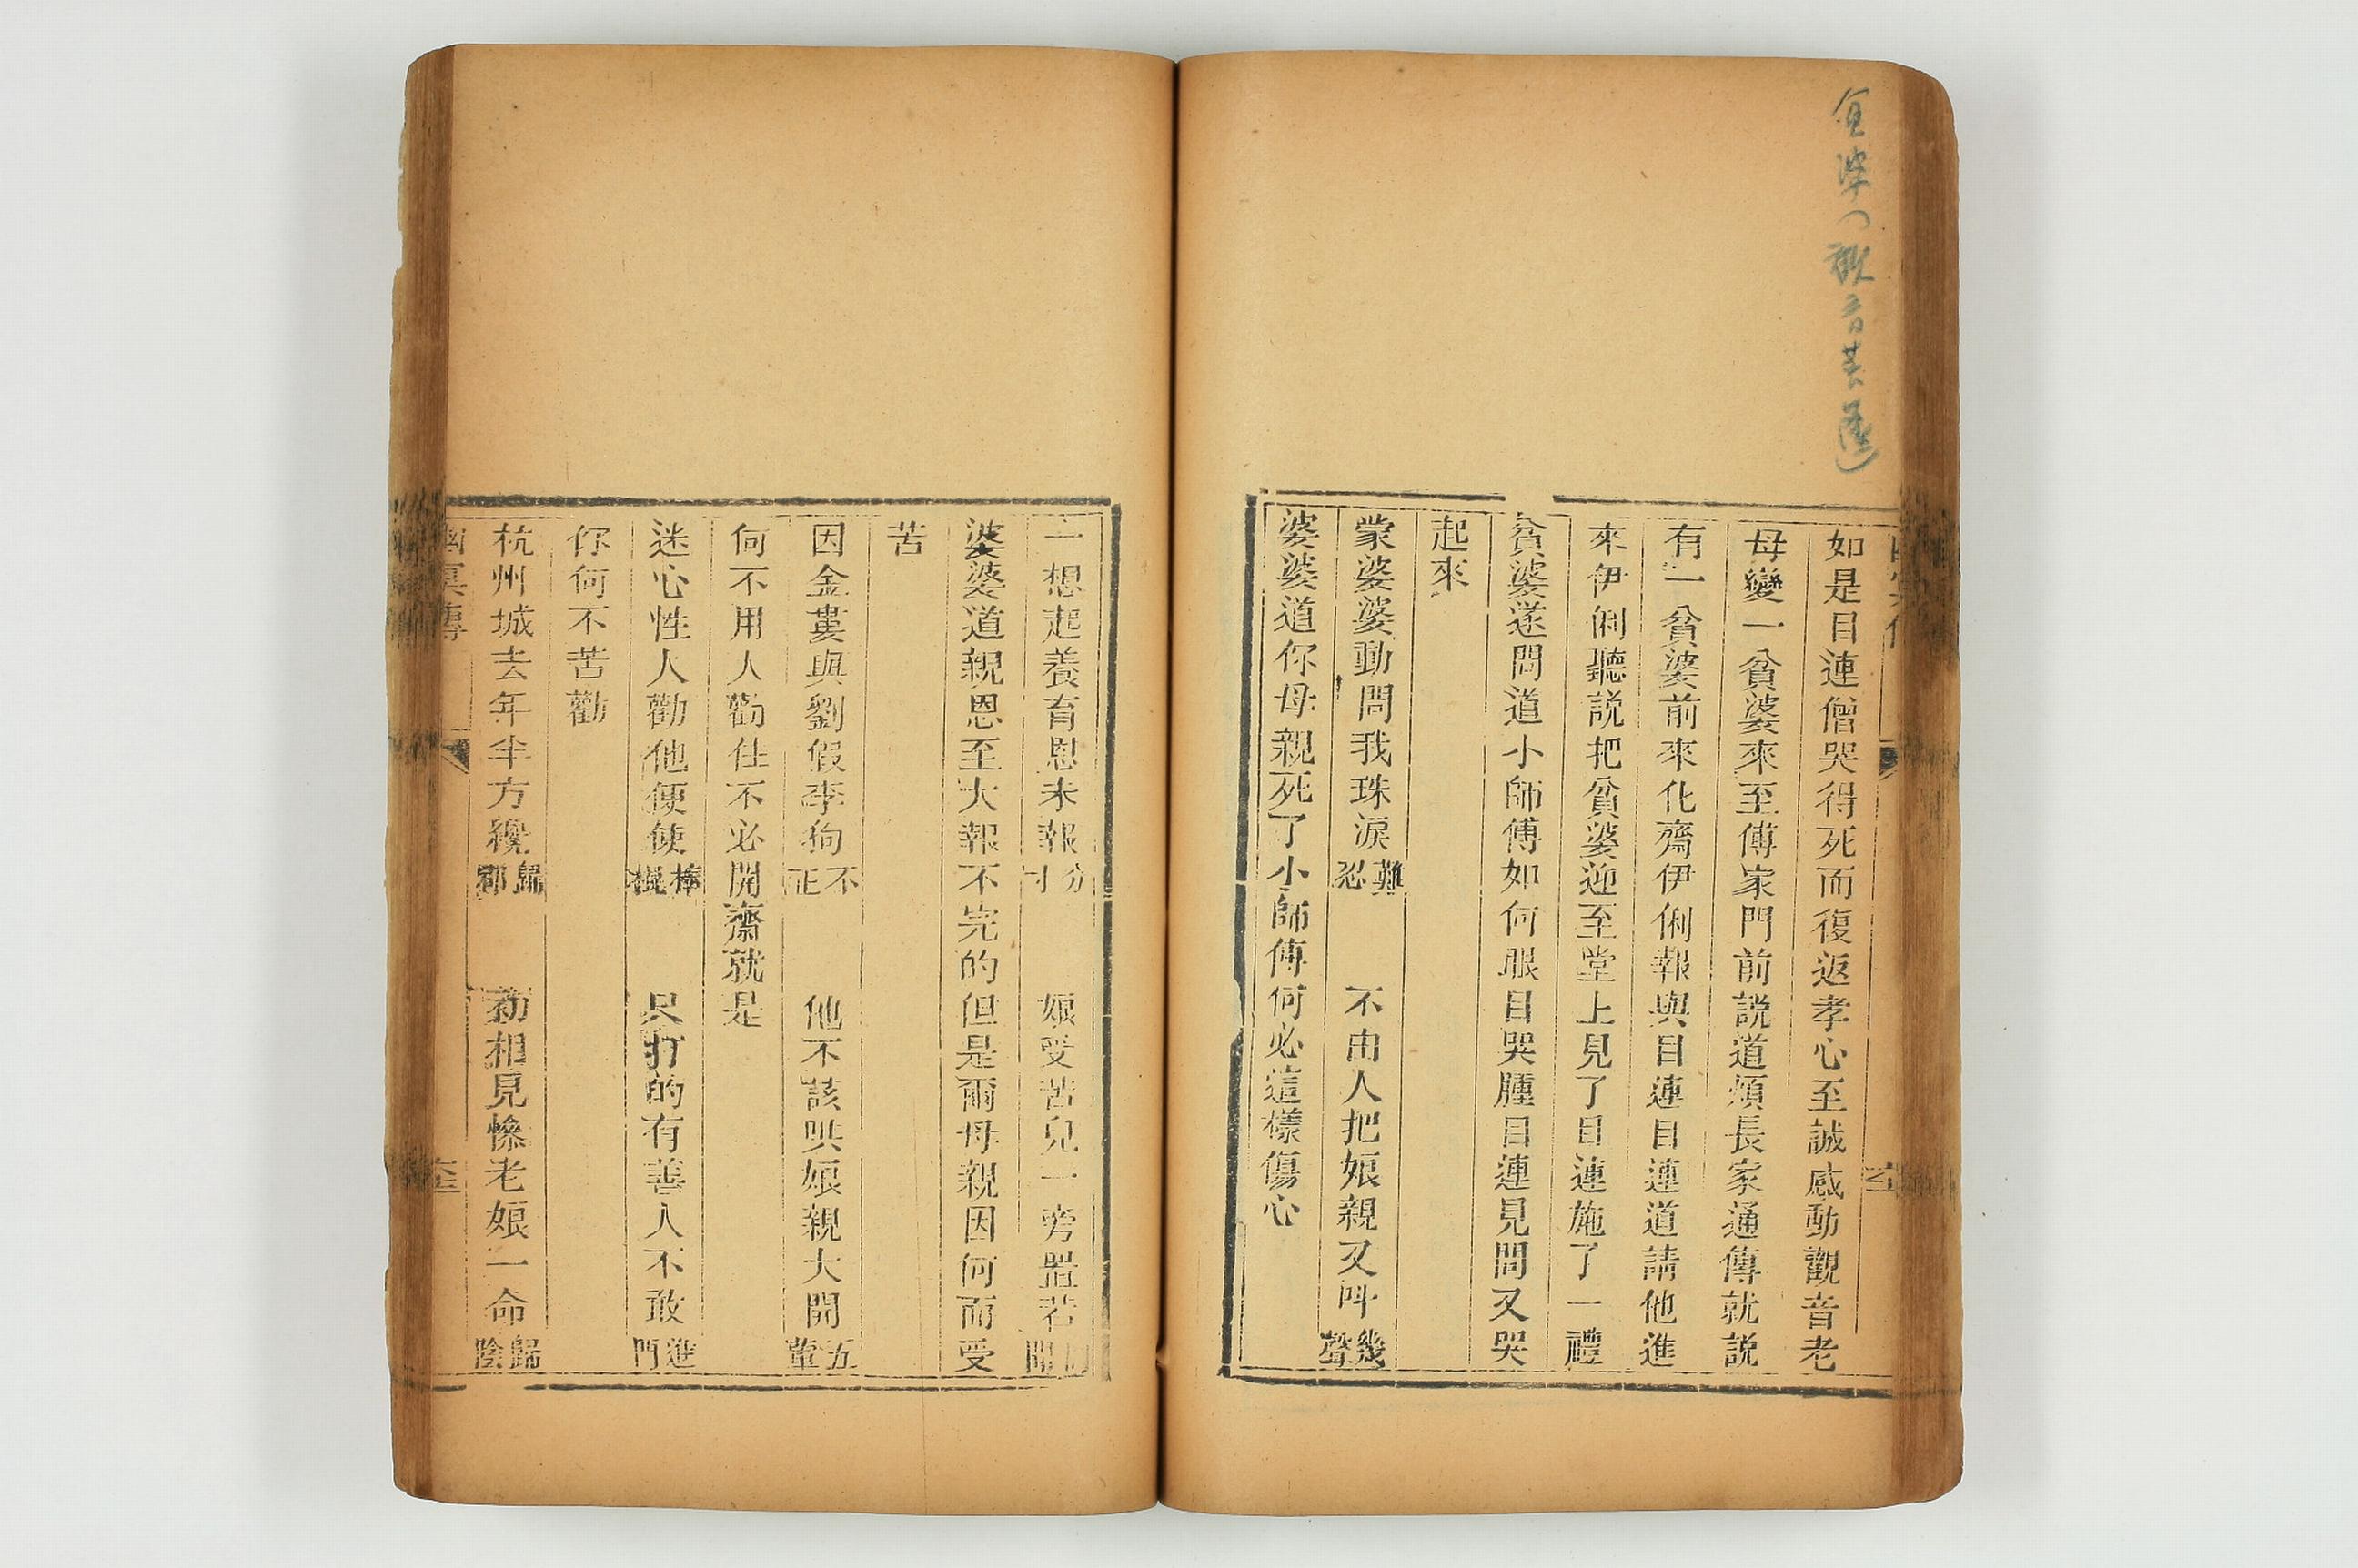 如是目連僧哭得死而復返孝心至誠感動觀音老
母變一貧婆來至傅家門前説道煩長家通傳就説
有一貧婆前來化齋伊俐報與目連目連道請他進
來伊俐聽説把貧婆迎至堂上見了目連施了一禮
貧婆遂問道小師傅如何眼目哭腫目連見問又哭
起來
蒙婆婆動問我珠淚難忍　不由人把娘親又呌幾聲
婆婆道你母親死了小師傅何必這樣傷心
一想起養育恩未報分寸　娘受苦兒一旁置若
婆婆道親恩至大報不完的但是爾母親因何而受
苦
因金婁與劉假李狗不正　他不該哄娘親大開五葷
何不用人勸住不必開齋就是
迷心性人勸他便使棒棍　只打的有善人不敢進門
你何不苦勸
杭州城去年半方纔歸郡　初相見慘老娘一命歸陰
幽冥傳